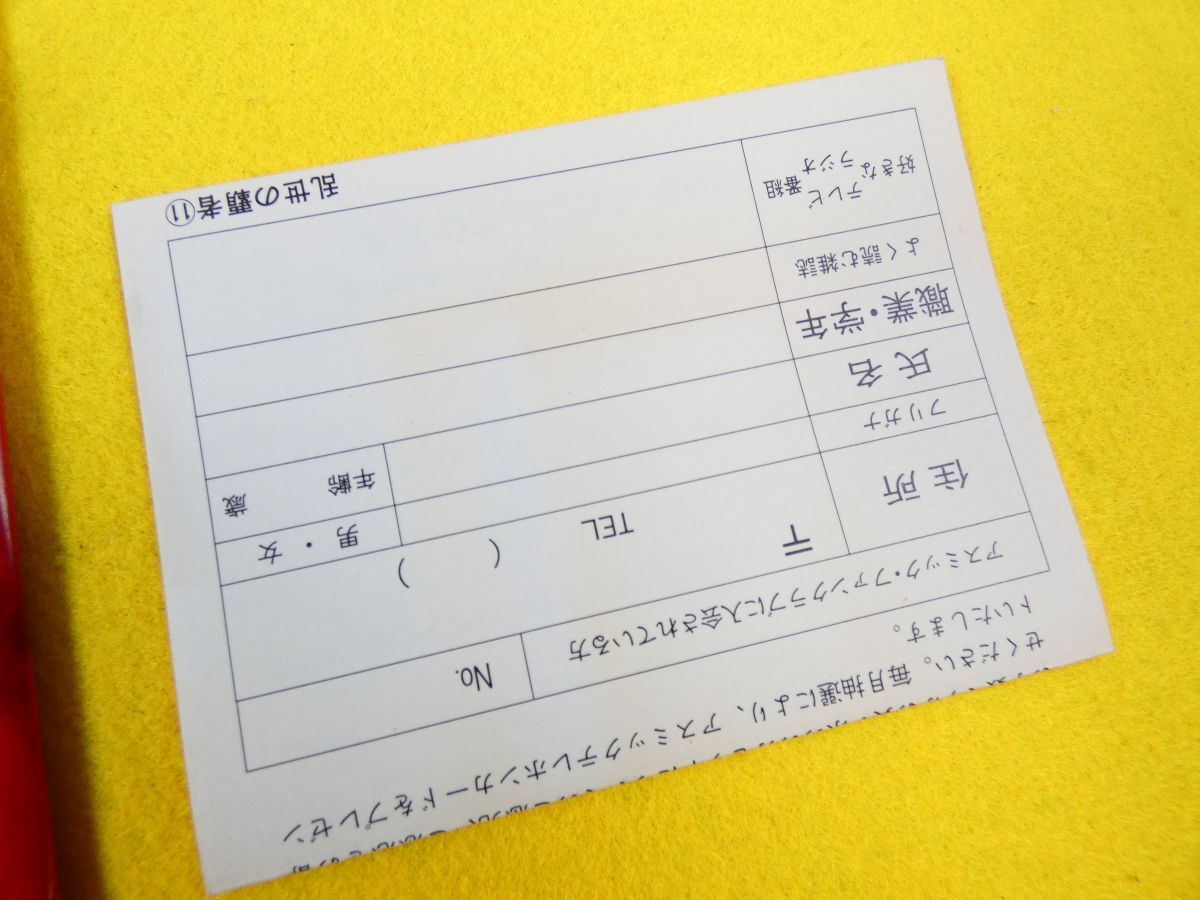 せください。毎月抽選により、アスミックテレホンカードをプレゼン
トいたします。
アスミック・ファンクラブに入会されている方 No.
住所 〒 TEL ( )
フリガナ 男・女
氏名 年齢 歳
職業・学年
よく読む雑誌
好きな テレビ ラジオ 番組
乱世の覇者⑪